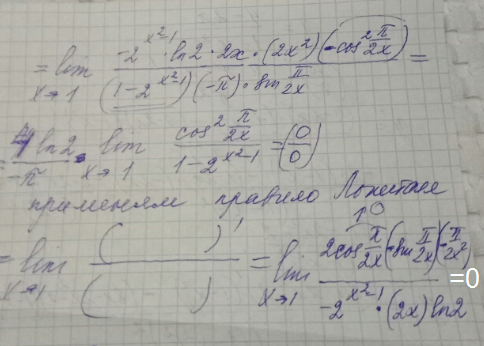 = lim x→1 (-2^(x²-1) · ln2 · 2x · (2x²)(-cos² π/2x)) / ((1-2^(x²-1))(-π) · sin π/2x) =
= 4 ln2 / -π · lim x→1 (cos² π/2x) / (1-2^(x²-1)) = (0/0)
применяем правило Лопиталя
= lim x→1 ( )' / ( ) = lim x→1 (2cos π/2x (-sin π/2x)(-π/2x²)) / (-2^(x²-1) · (2x) ln2) =0